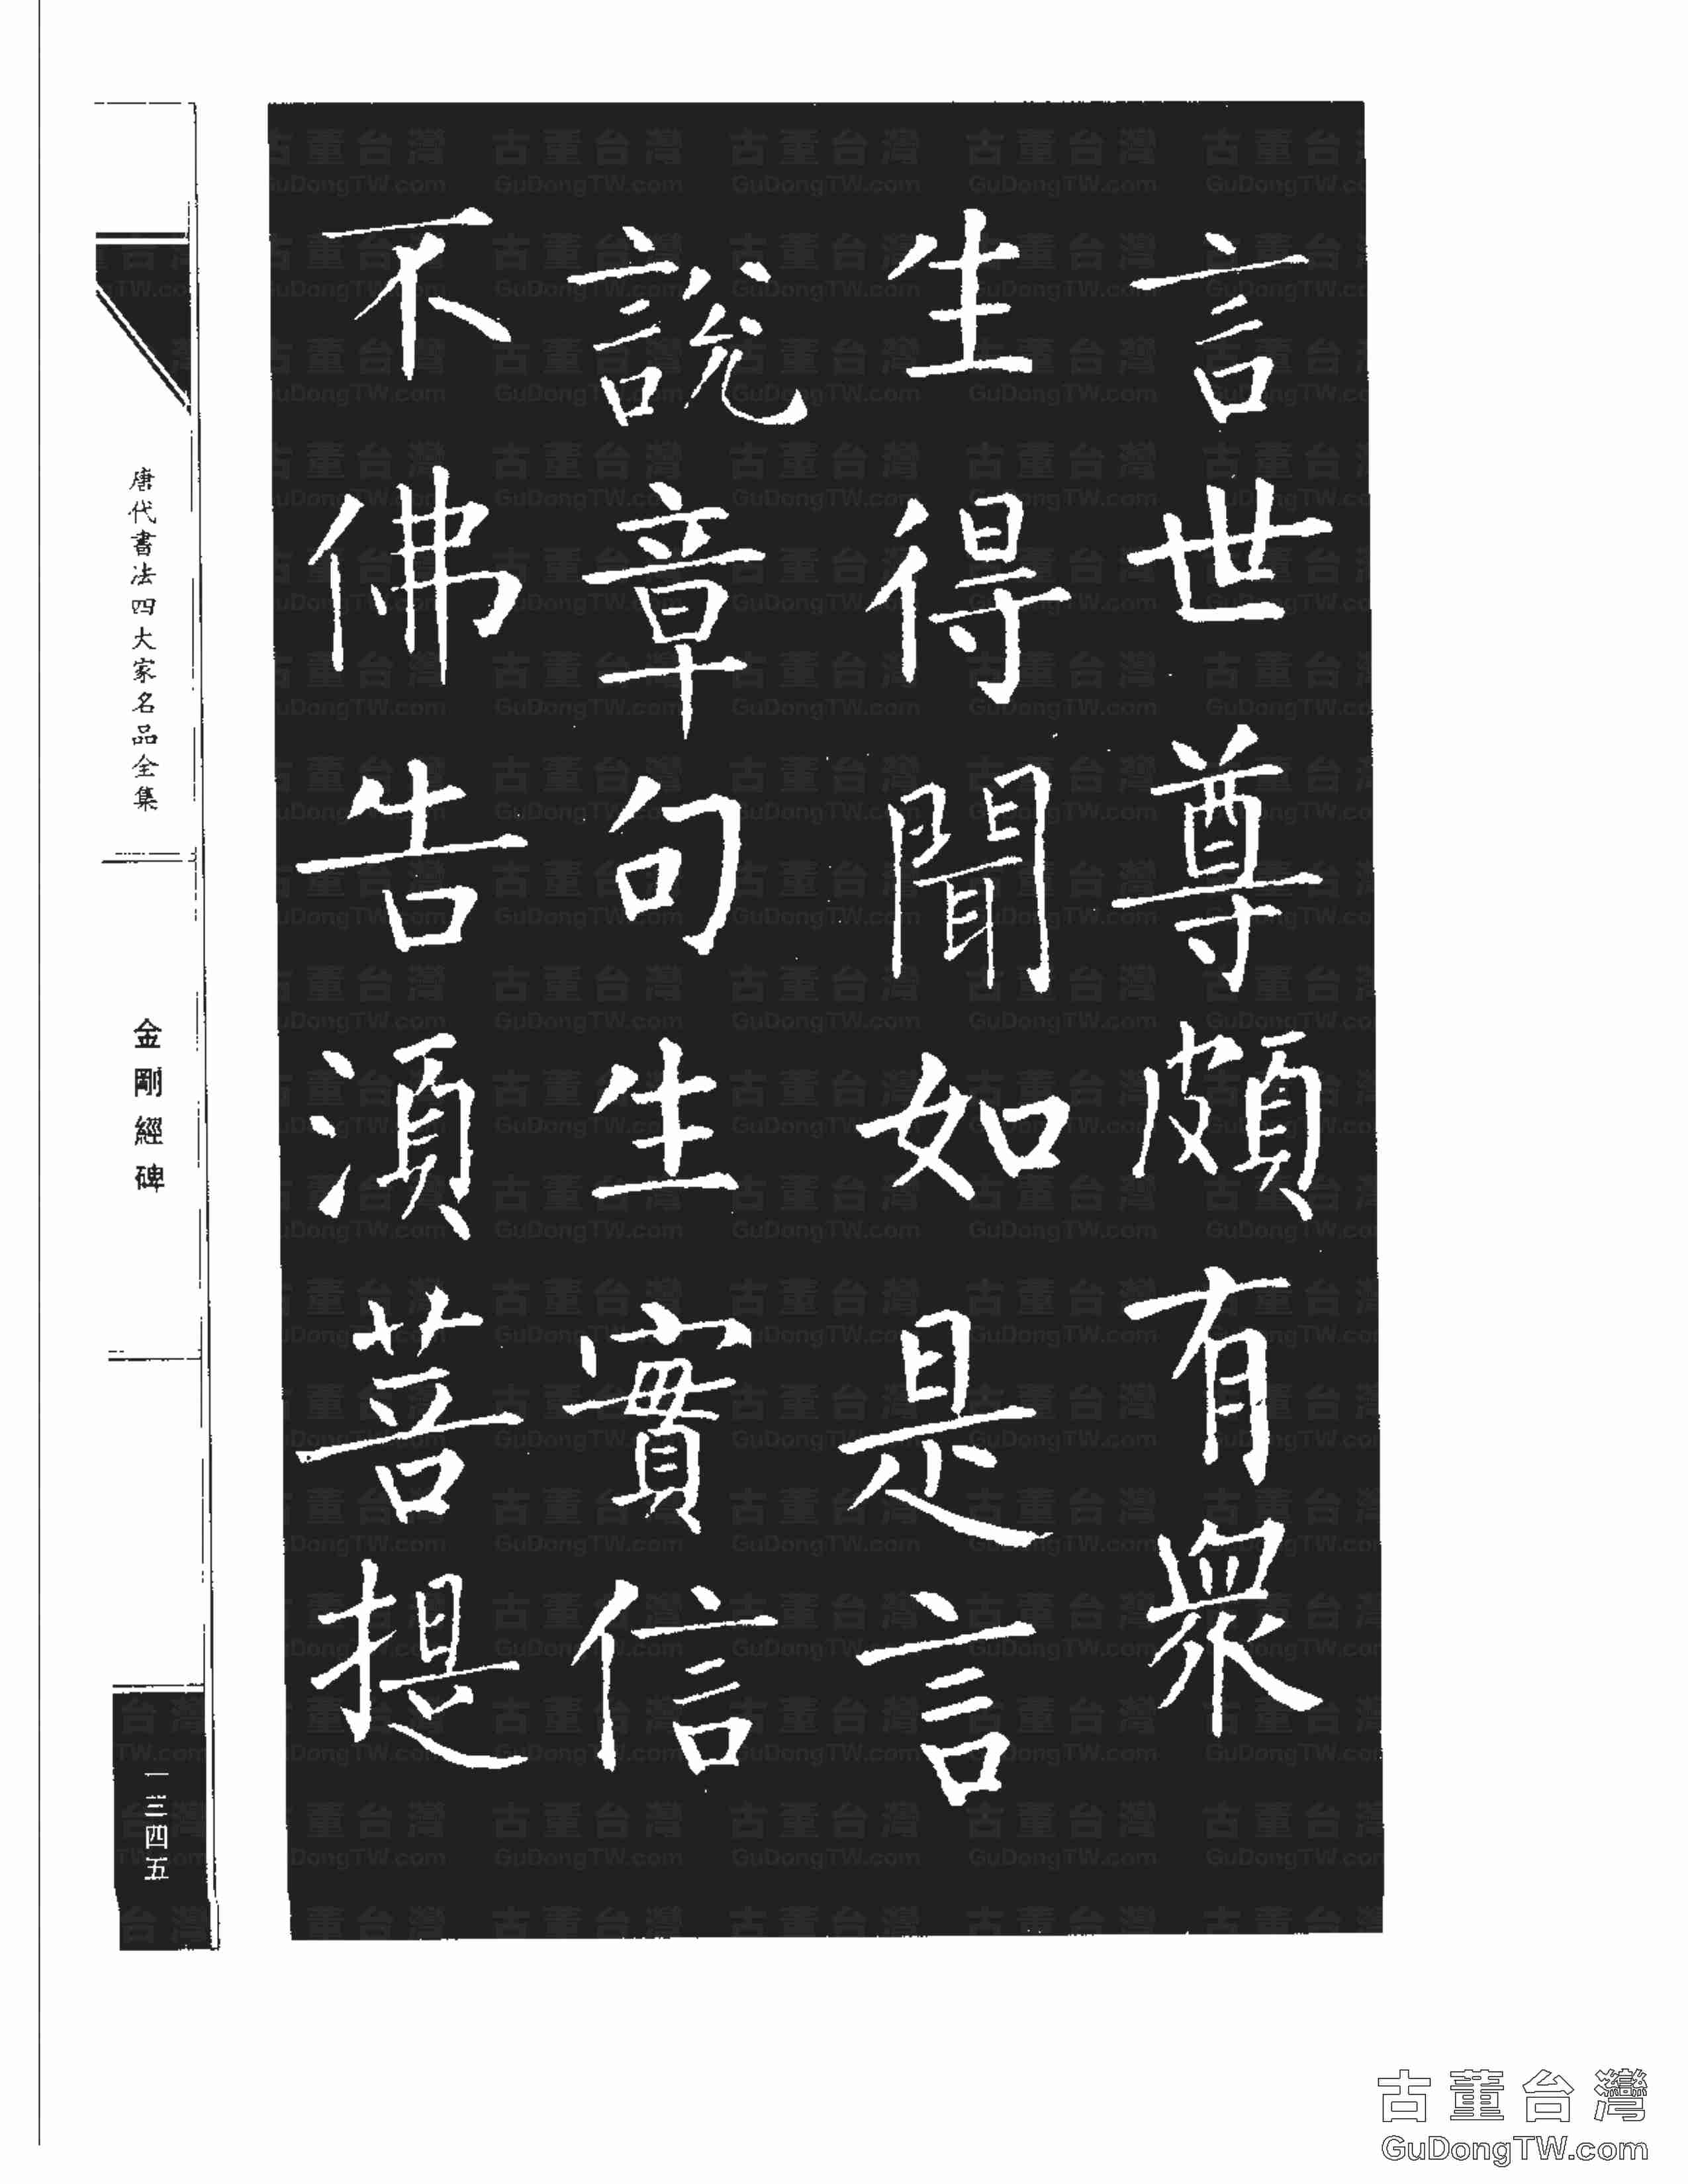 言世尊頗有眾
生得聞如是言
說章句生實信
不佛告須菩提
唐代書法四大家名品全集
金剛經碑
一三四五
古董台灣
GuDongTW.com